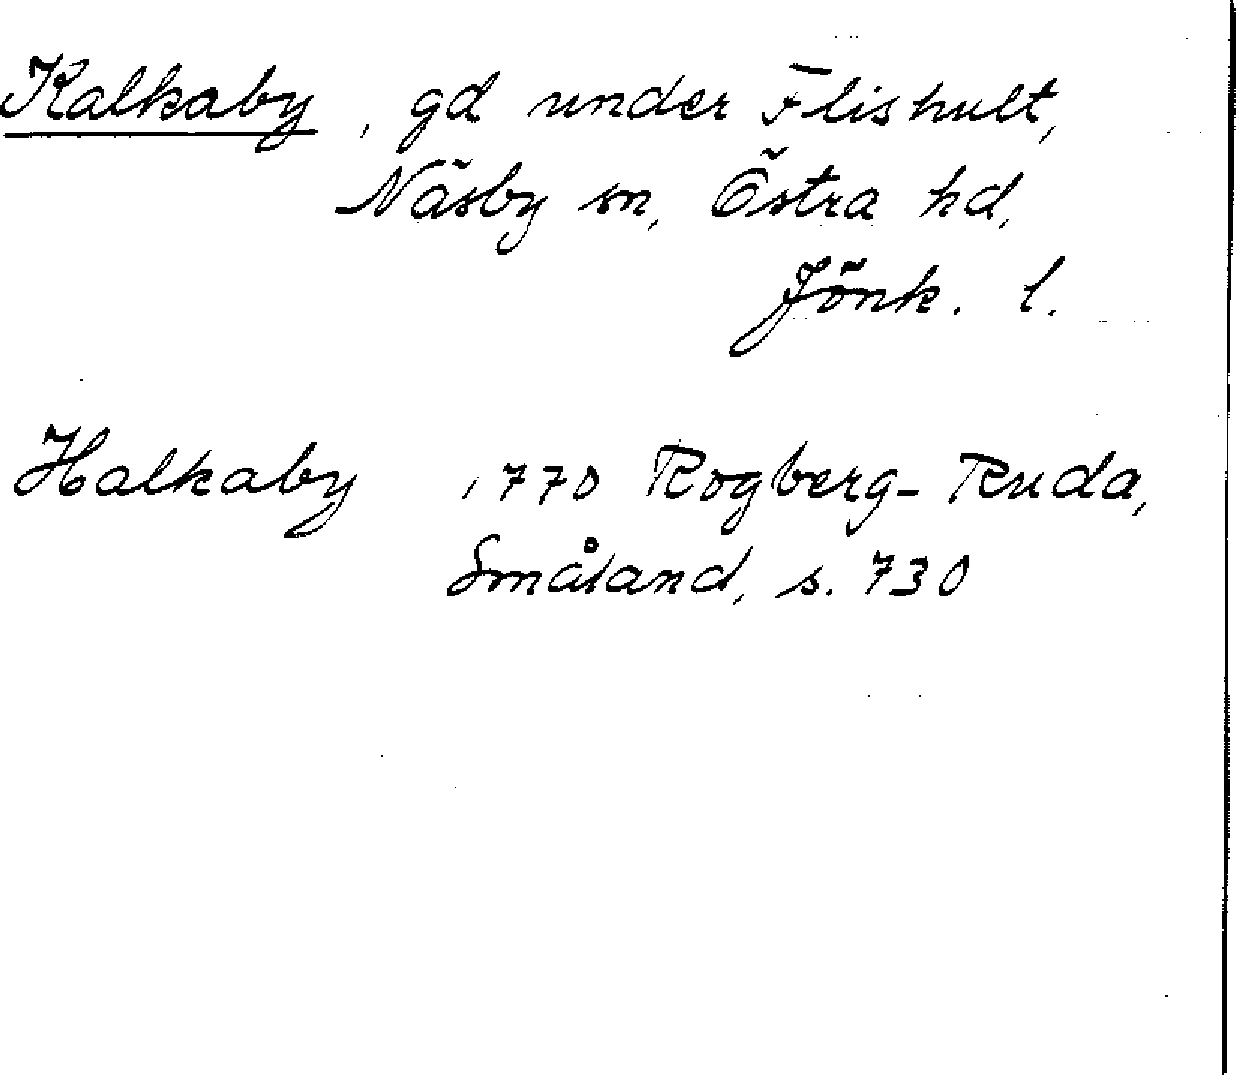 Kalkaby, gd under Flishult,
Näsby sn, Östra hd,
Jönk. l.
Halkaby 1770 Rogberg-Ruda,
Småland, s. 730